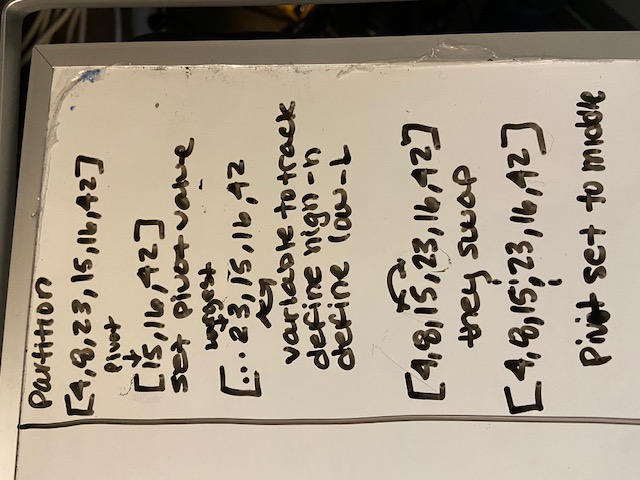 Partition
[4,8,23,15,16,42]
Pivot
[15,16,42]
set pivot value
biggest
[...23,15,16,42
variable to track
define high-h
define low-L
[4,8,15,23,16,42]
they swap
[4,8,15,23,16,42]
Pivot set to middle